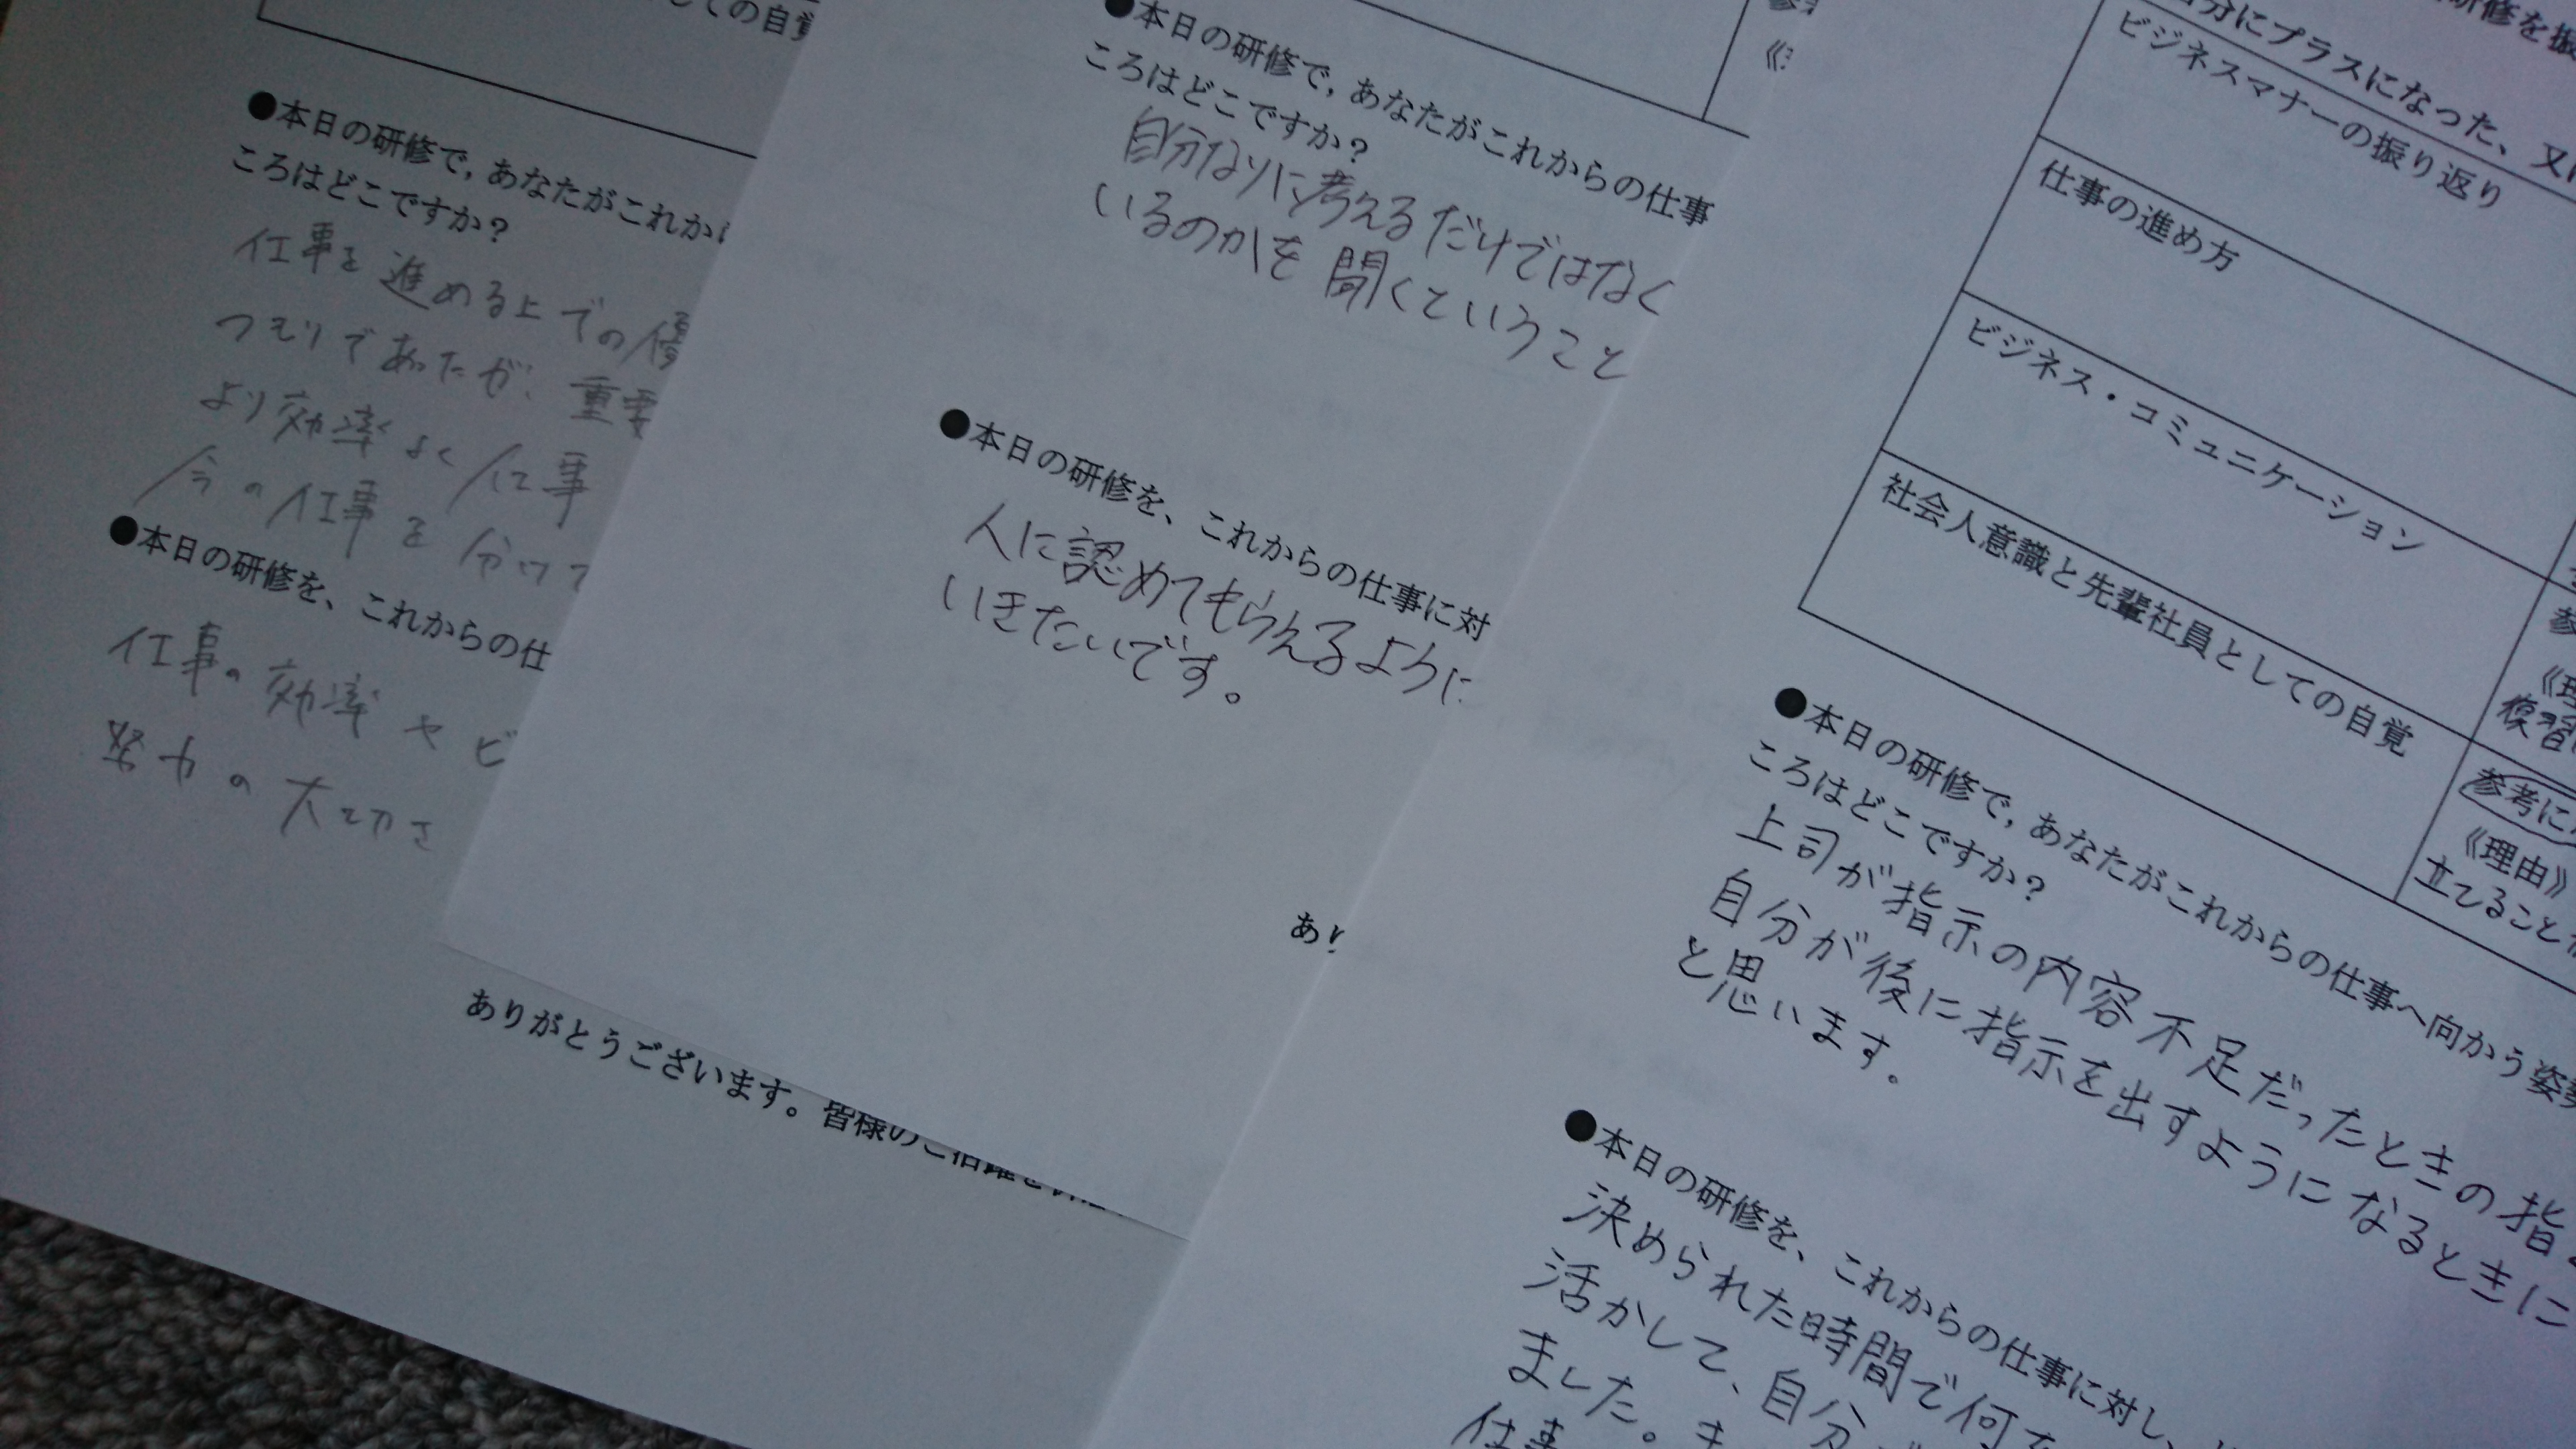 ての自覚
●本日の研修で,あなたがこれか
ころはどこですか?
仕事を進める上での優
つもりであったが、重要
より効率よく仕事
今の仕事を分けて
●本日の研修を、これからの仕
仕事の効率やビ
努力の大切さ
ありがとうございます。皆様のご活躍を
●本日の研修で,あなたがこれからの仕事
ころはどこですか?
自分なりに考えるだけではなく
いるのかを聞くということ
●本日の研修を、これからの仕事に対
人に認めてもらえるように
いきたいです。
あり
研修を振
自分にプラスになった、又は
ビジネスマナーの振り返り
仕事の進め方
ビジネス・コミュニケーション
社会人意識と先輩社員としての自覚
参
《理
復習
参考に
《理由》
立てること
●本日の研修で,あなたがこれからの仕事へ向かう姿勢
ころはどこですか?
上司が指示の内容不足だったときの指
自分が後に指示を出すようになるときに
と思います。
●本日の研修を、これからの仕事に対し、
決められた時間で何を
活かして、自分
ました。ま
仕事